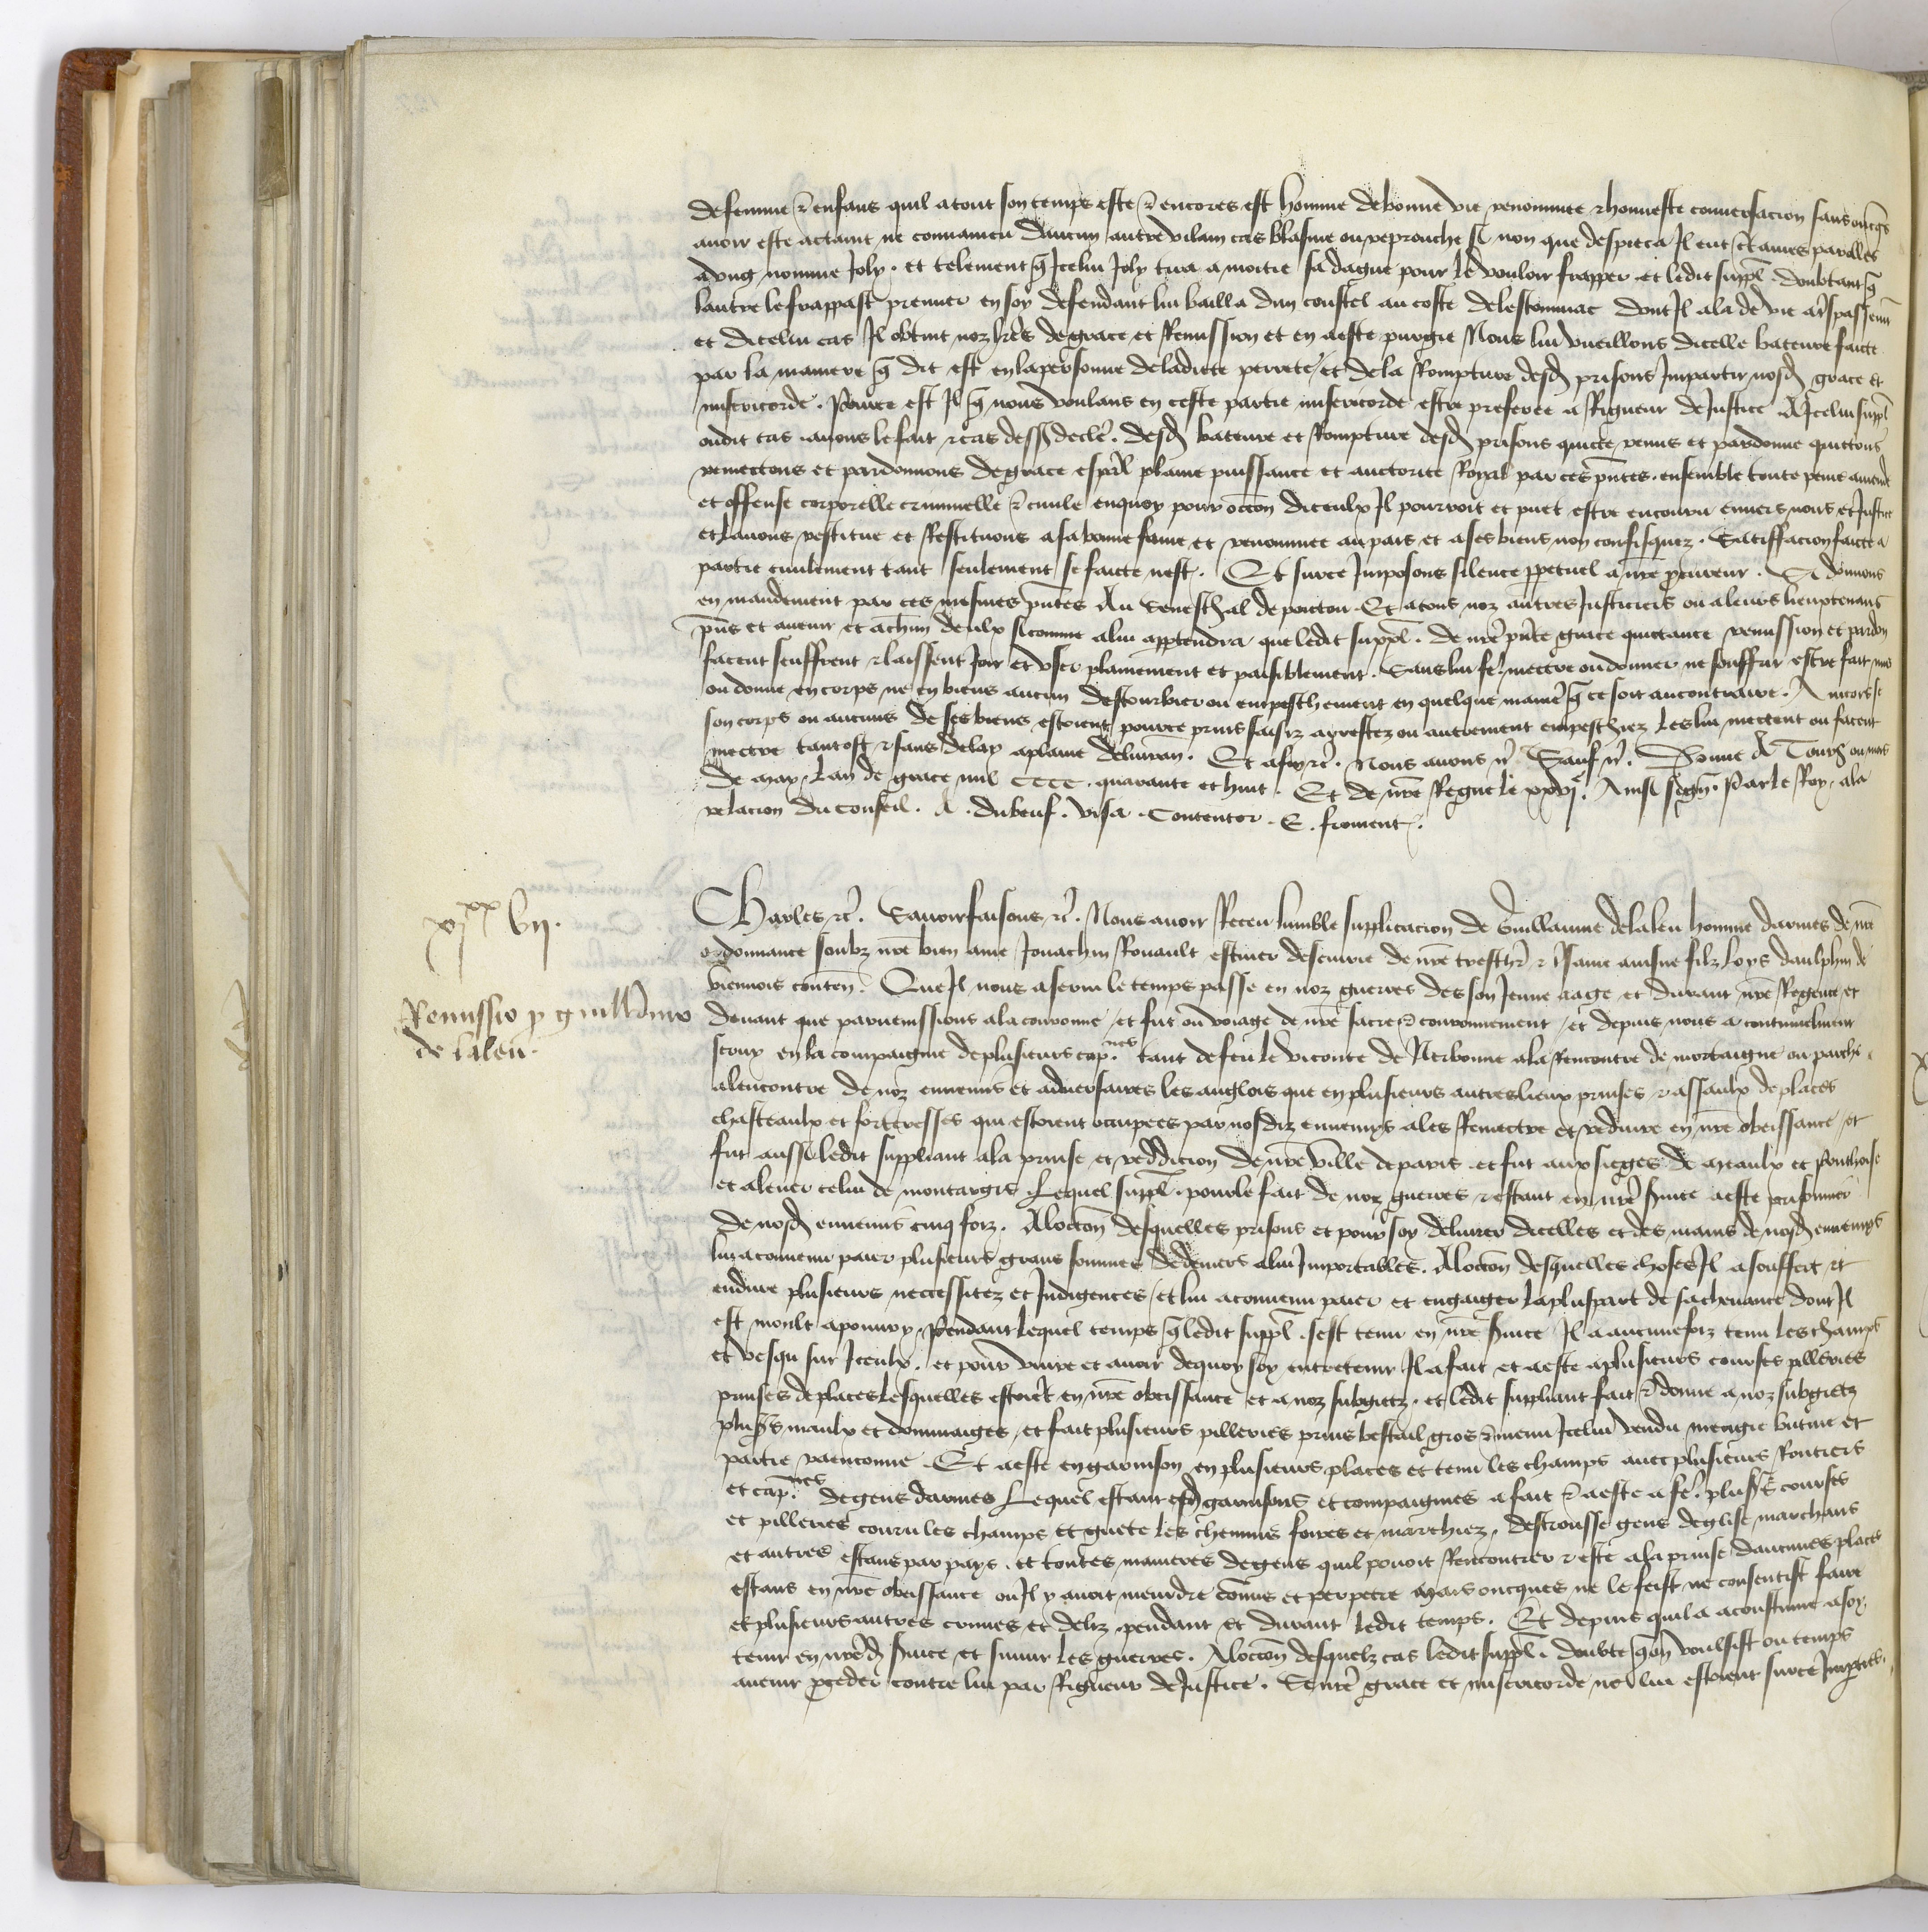 de femme & enfans quil a tout son temps este & encores est homme de bonne vie renommee & honneste conversacion sans oncqs
avoir este actaint ne convaincu daucun autre vilain cas blasme ou reprouche si non que despieca Il eut certaines parolles
a ung nomme Joly. et telement q Icelui Joly tira a moitie sa dague pour le vouloir frapper et ledit suppl. doubtant q
lautre le frappast premier en soy defendant lui bailla dun coustel au coste de lestommac dont Il ala de vie a trespassement
et dicelui cas Il obtint noz lres de grace et Remission et en a este purgie Nous lui vueillons dicelle bateure faicte
par la maniere q dit est en la personne de ladicte perrete et de la Rompture desd prisons Impartir nosd grace et
misericorde. Pource est Il q nous voulans en ceste partie misericorde estre preferee a Rigueur de Justice A Icelui suppl
oudit cas avons le fait & cas dessus decle. desd bateure et Rompture desd prisons quicte remis et pardonne quictons
remectons et pardonnons de grace espal plaine puissance et auctorite Royal par ces pntes. ensemble toute peine amende
et offense corporelle criminelle & civile en quoy pour occon diceulx Il pourroit et puet estre encouru envers nous et Justice
et Lavons restitue et Restituons a sa bonne fame et renommee au pais et a ses biens non confisquez. Satisfacion faicte a
partie civilement tant seulement se faicte nest. Et sur ce Imposons silence ppetuel a nre procureur. Si donnons
en mandement par ces mesmes pntes Au Seneschal de poictou Et a tous noz autres Justiciers ou a leurs lieuxtenans
pns et avenir et a chun deulx si comme a lui apptendra que ledit suppl. de nre pnte grace quictance remission et pardon
facent seuffrent & laissent Joir et user plainement et paisiblement. Sans lui fe. mectre ou donner ne souffrir estre fait mis
ou donne en corps ne en biens aucun destourbier ou empeschement en quelque maniere q ce soit au contraire. Aincois se
son corps ou aucuns de ses biens estoient pour ce prins saisiz arrestez ou autrement empeschiez les lui mectent ou facent
mectre tantost & sans delay a plaine delivran. Et afin &c. Nous avons &c Sauf &c. Donne A Tours ou mois
de may. Lan de grace mil CCCC. quarante et huit. Et de nre Regne le xxvje. Ainsi sign. Par le Roy. a la
relacion du Conseil. A. dubeuf. Visa. Contentor. E. froment.

xjxx vij.
Remissio p guillelmo
de laleu.

Charles &c. Savoir faisons &c. Nous avoir Receu lumble supplicacion de Guillaume de laleu homme darmes de nre
ordonnance soubz nre bien ame Jouachin Rouault escuier descuirie de nre treschr & tsame aisne filz Loys daulphin de
Viennois conten. Que Il nous a servi le temps passe en noz guerres des son Jeune aage et durant nre Regence et
devant que parvenissions a la couronne, et fut ou voiage de nre sacre & couronnement, et depuis nous a continuelment
servy en la compaignie de plusieurs capnes. tant de feu le viconte de Nerbonne a la Rencontre de mortaigne ou parche
a lencontre de noz ennemis et adversaires les anglois que en plusieurs autres lieux prinses & assaulx de places
chasteaulx et forteresses qui estoient occupees par nosdiz ennemys a les Remectre et reduire en nre obeissance, et
fut aussi ledit suppliant a la prinse et reddicion de nre Ville de paris. et fut aux sieges de Meaulx et Ponthoise
et a lever celui de montargis. Lequel suppl. pour le fait de noz guerres & estant en nre svice a este prisonnier
de nosd ennemis cinq foiz. A loccon desquelles prisons et pour soy delivrer dicelles et des mains de nosd ennemys
lui a convenu paier plusieurs grans sommes de deniers a lui Importables. A loccon desquelles choses Il a souffert et
endure plusieurs neccessitez et Indigences, et lui a convenu paier et engaiger la pluspart de sa chevance dont Il
est moult apouvry. Pendant lequel temps q ledit suppl. sest tenu en nre svice Il a aucunefoiz tenu les champs
et vesqu sur Iceulx. et pour vivre et avoir de quoy soy entretenir Il a fait et a este a plusieurs courses pilleries
prinses de places lesquelles estoient en nre obeissance et a noz subgietz. et ledit suppliant fait & donne a noz subgietz
plusrs maulx et dommaiges, et fait plusieurs pilleries prins bestail gros & menu Icelui vendu mengie butine et
partie raenconne. Et a este en garnison en plusieurs places et tenu les champs avec plusieurs Routiers
et capnes. de gens darmes Lequel estant esd garnisons et compaignies a fait & a este a fe. plusrs courses
et pilleries couru les champs et guete les chemins foires et marchiez. destrousse gens deglise marchans
et autres estans par pays. et toutes manieres de gens quil povoit Rencontrer & este a la prinse daucunes places
estans en nre obeissance ou Il y avoit meurdre comis et perpetre mais oncques ne le feist ne consentist faire
et plusieurs autres crimes et deliz pendant et durant ledit temps. Et depuis quil a acoustume a soy
tenir en nred svice et suivir les guerres. A loccon desquelz cas ledit suppl. doubte q on voulsist ou temps
avenir proceder contre lui par Rigueur de Justice. Se nre grace et misericorde ne lui estoient sur ce Imparties.